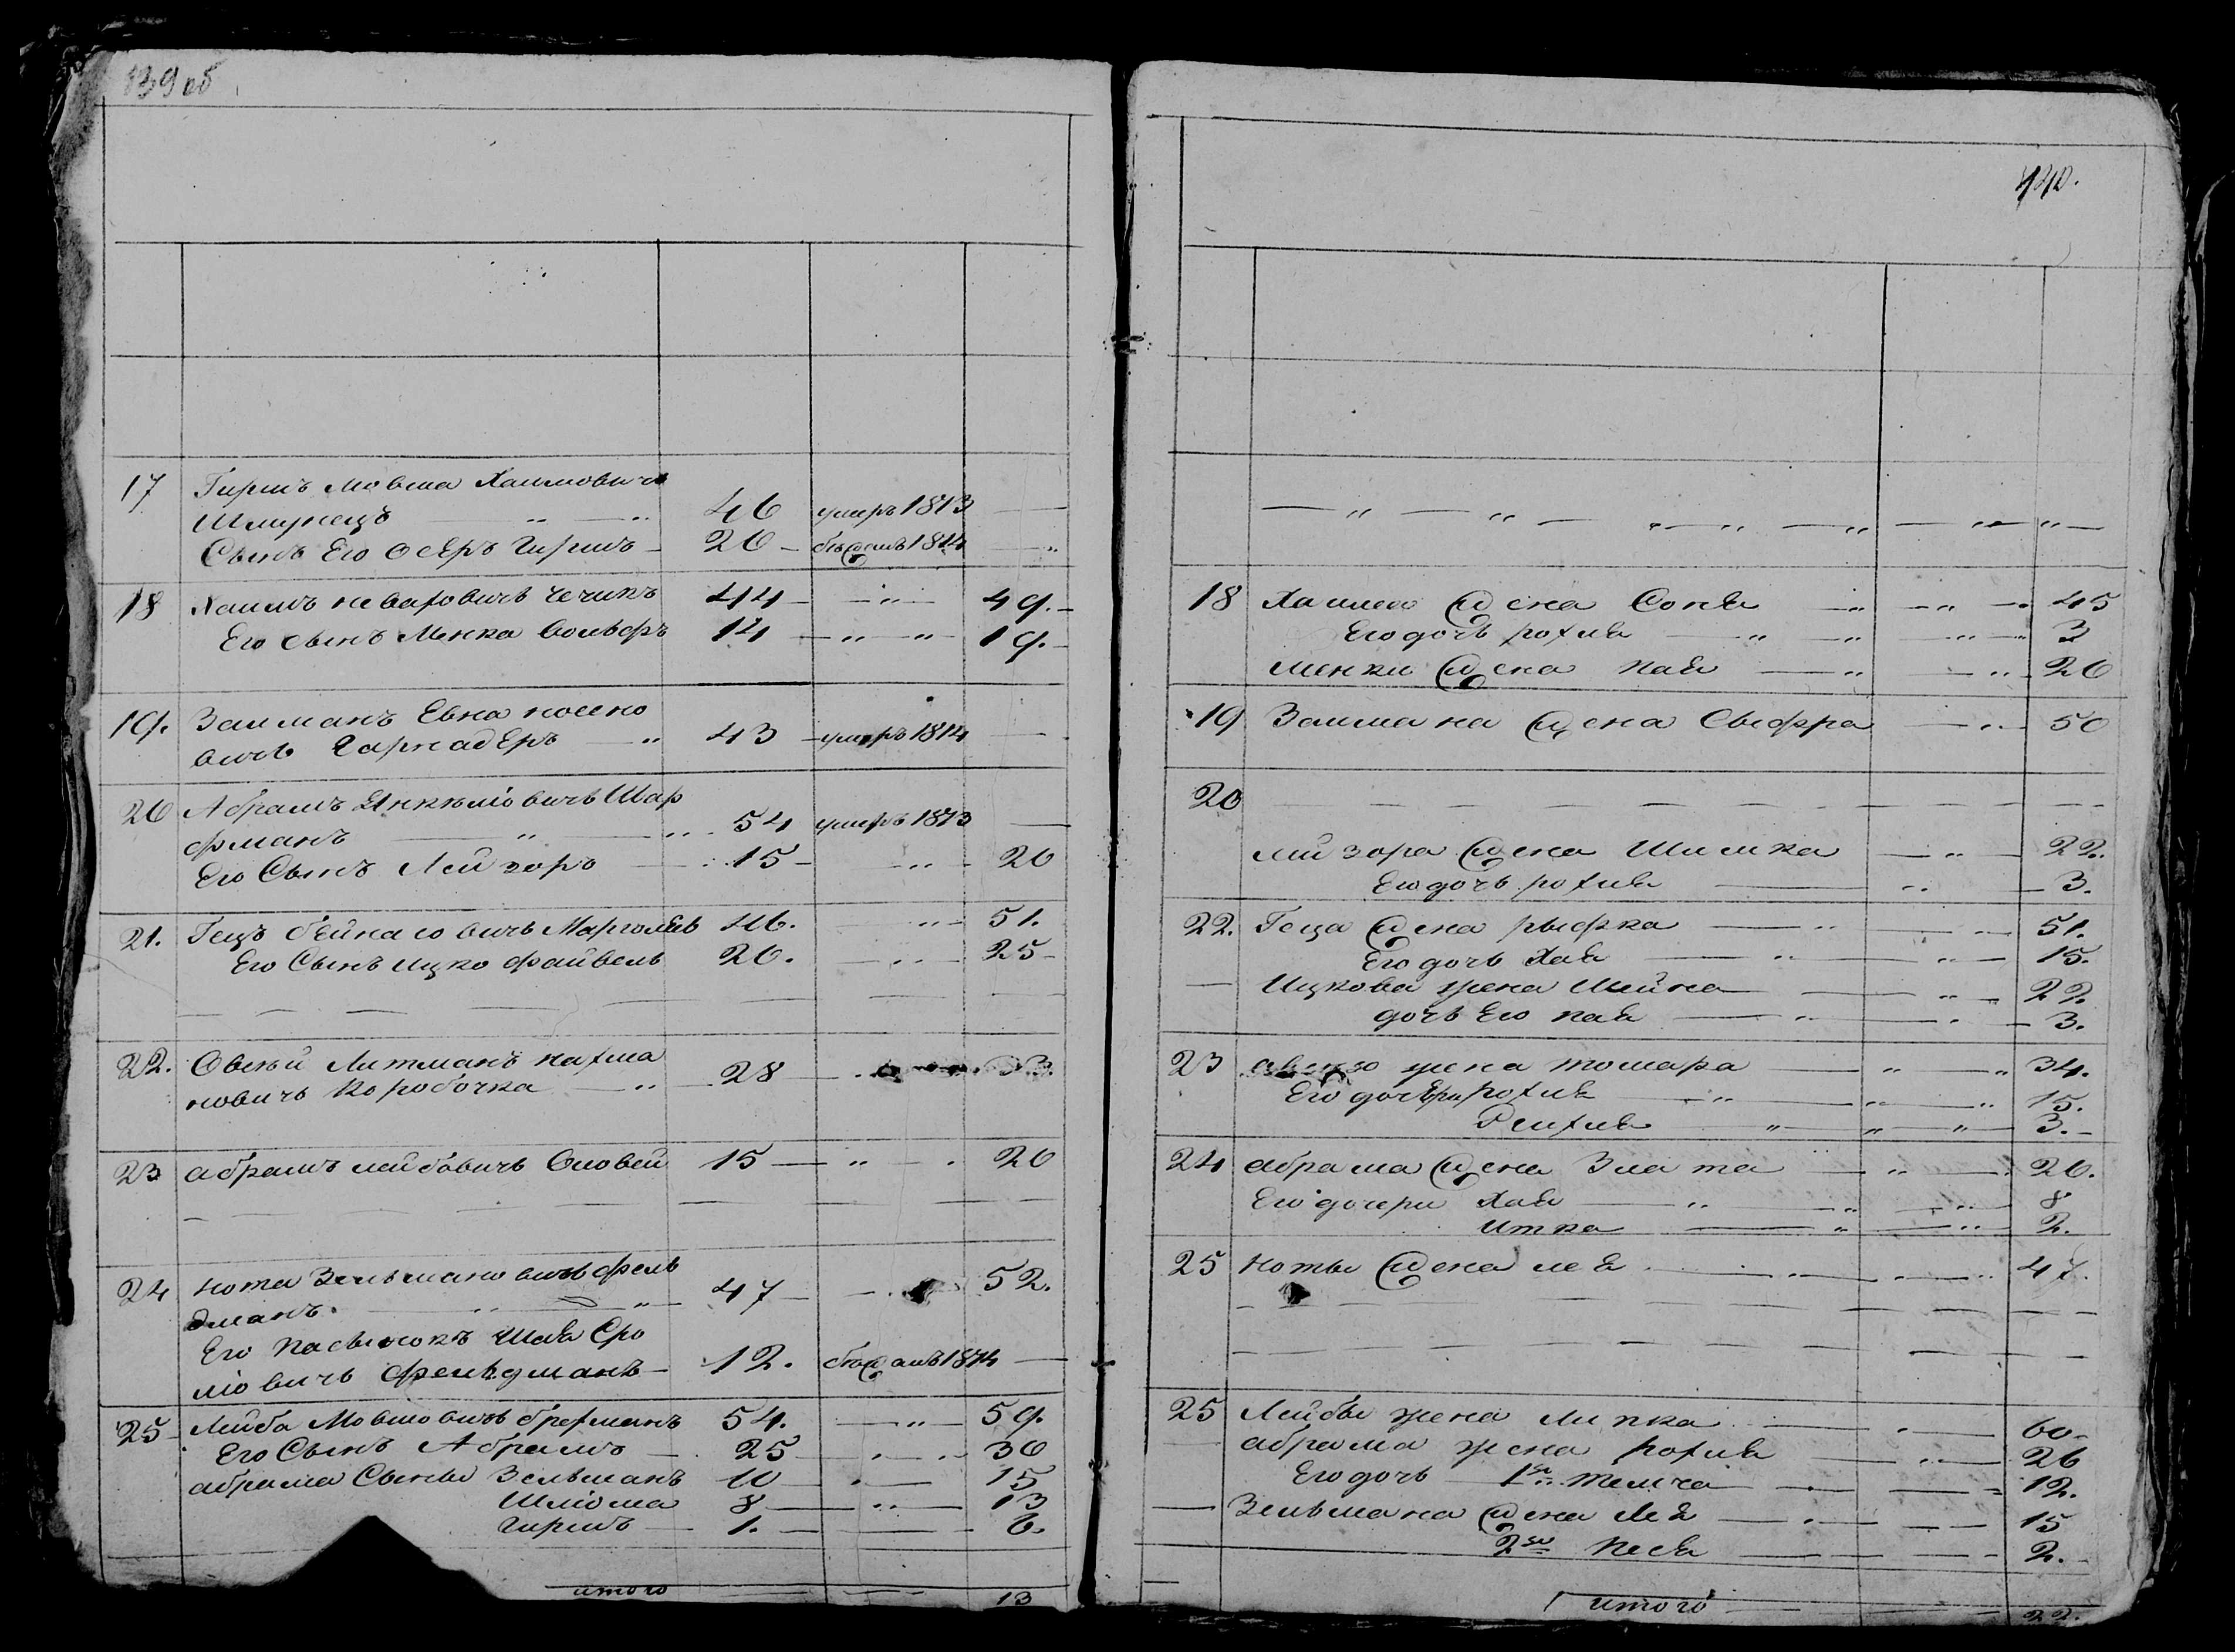 139 об
17 Гиршъ мовша Хаимовичъ
Шмунецъ 46 умеръ 1813
Сынъ Его осеръ Гиршъ 20 бежалъ 1814
18 Хаимъ невахович чечикъ 44 49.
Его сынъ Менка вольфъ 14 19.
19. Залманъ Евна
вичъ 43 умеръ 1814
20 Абрамъ Янкеліовичъ Шар
фманъ 54 умеръ 1813
Его Сынъ Лейзоръ 15 20
21. Гецъ Бейнасовичъ Марголевъ 46. 51.
Его Сынъ ицко файвель 20. 25
22. Овсѣй Литманъ нахма
новичъ коробочка 28 33.
23 абрамъ лейбовичъ Словей 15 20
24 нота Зельмановичъ фель
дманъ 47 52.
Его пасынокъ Шая Сро
ліовичъ Фельдманъ 12. бежалъ 1814
25 Лейба Мовшовичъ брехманъ 54. 59.
Его Сынъ Абрамъ 25 30
абрама Сыны Зельманъ 10 15
Шліома 8 13
гиршъ 1. 6.
итого 13
140.
18 Хаима жена Соня 45
Его дочь рохля 3
менки жена пая 20
19 Залмана жена Сыфра 50
20
лейзора жена Шимка 22.
Его дочь рохля 3.
22. Геца жена рыфка 51.
Его дочь Хая 15.
Ицкова жена Шейна 22
дочь Его пая 3.
23 жена томара 34.
Его рохля 15.
3.
24 абрама жена Злата 20.
Его дочери Хая 8
итка 2.
25 ноты жена лея 47.
25 Лейбы жена липка 60
абрама жена рохля 26
Его дочь 1я 12.
Зельмана жена Лея 15
2я песя 2.
итого 22.